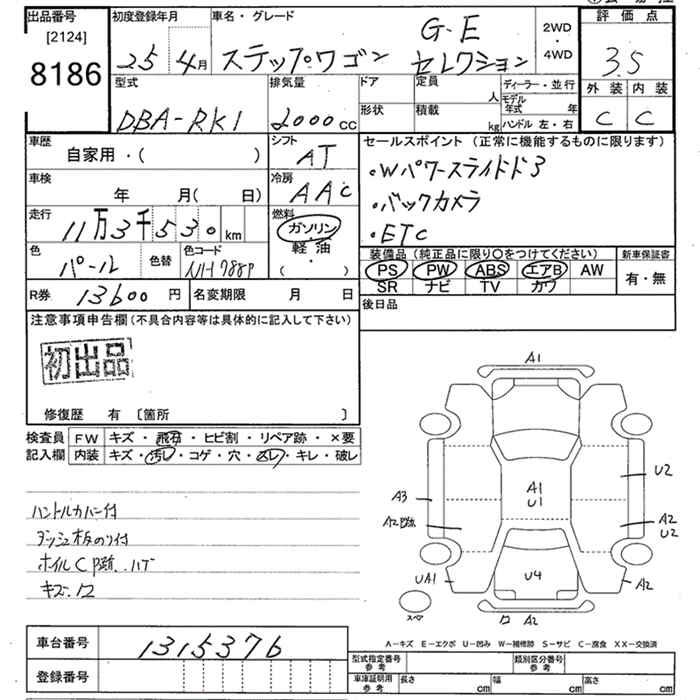 出品番号
[2124]
8186
初度登録年月
25 4月
車名・グレード
ステップワゴン G・E セレクション
2WD
・
4WD
評価点
3.5
外装 内装
C C
型式
DBA-RK1
排気量
2000cc
ドア
定員 人
形状
積載 kg
ディーラー・並行
モデル年式 年
ハンドル 左・右
車歴
自家用・( )
シフト
AT
車検
年 月( 日)
冷房
AAC
走行
11万3千530km
燃料
ガソリン
軽油
( ・ )
色
パール
色替
色コード
NH788P
R券 13600円
名変期限 月 日
セールスポイント(正常に機能するものに限ります)
・Wパワースライドドア
・バックカメラ
・ETC
装備品(純正品に限り○をつけてください)
PS PW ABS エアB AW
SR ナビ TV カワ
新車保証書
有・無
後日品
注意事項申告欄(不具合内容等は具体的に記入して下さい)
初出品
修復歴 有 〔箇所 〕
検査員記入欄
FW キズ・飛石・ヒビ割・リペア跡・×要
内装 キズ・汚レ・コゲ・穴・スレ・キレ・破レ
ハンドルカバー付
ダッシュ板のり付
ホイルC跡、ハゲ
キズ、ワ
A1
A1
U1
U2
A3
A2跡
A2
U2
UA1
U4
A2
スペア
ワ A2
A-キズ E-エクボ U-凹み W-補修跡 S-サビ C-腐食 XX-交換済
車台番号 1315376
登録番号
型式指定番号 参考
類別区分番号 参考
車庫証明用 参考
長さ cm
幅 cm
高さ cm